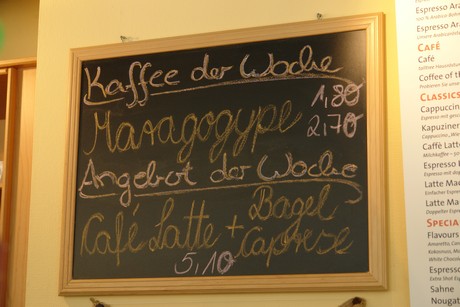 Kaffee der Woche
Maragogype 1,80
2,70
Angebot der Woche
Café Latte + Bagel
Caprese
5,10
Espresso
Espresso
CAFÉ
Café
Coffee of th
CLASSICS
Cappuccin
Kapuziner
Caffè Latt
Espresso
Latte Mac
Latte Mac
SPECIA
Flavours
Espresso
Sahne
Nougat